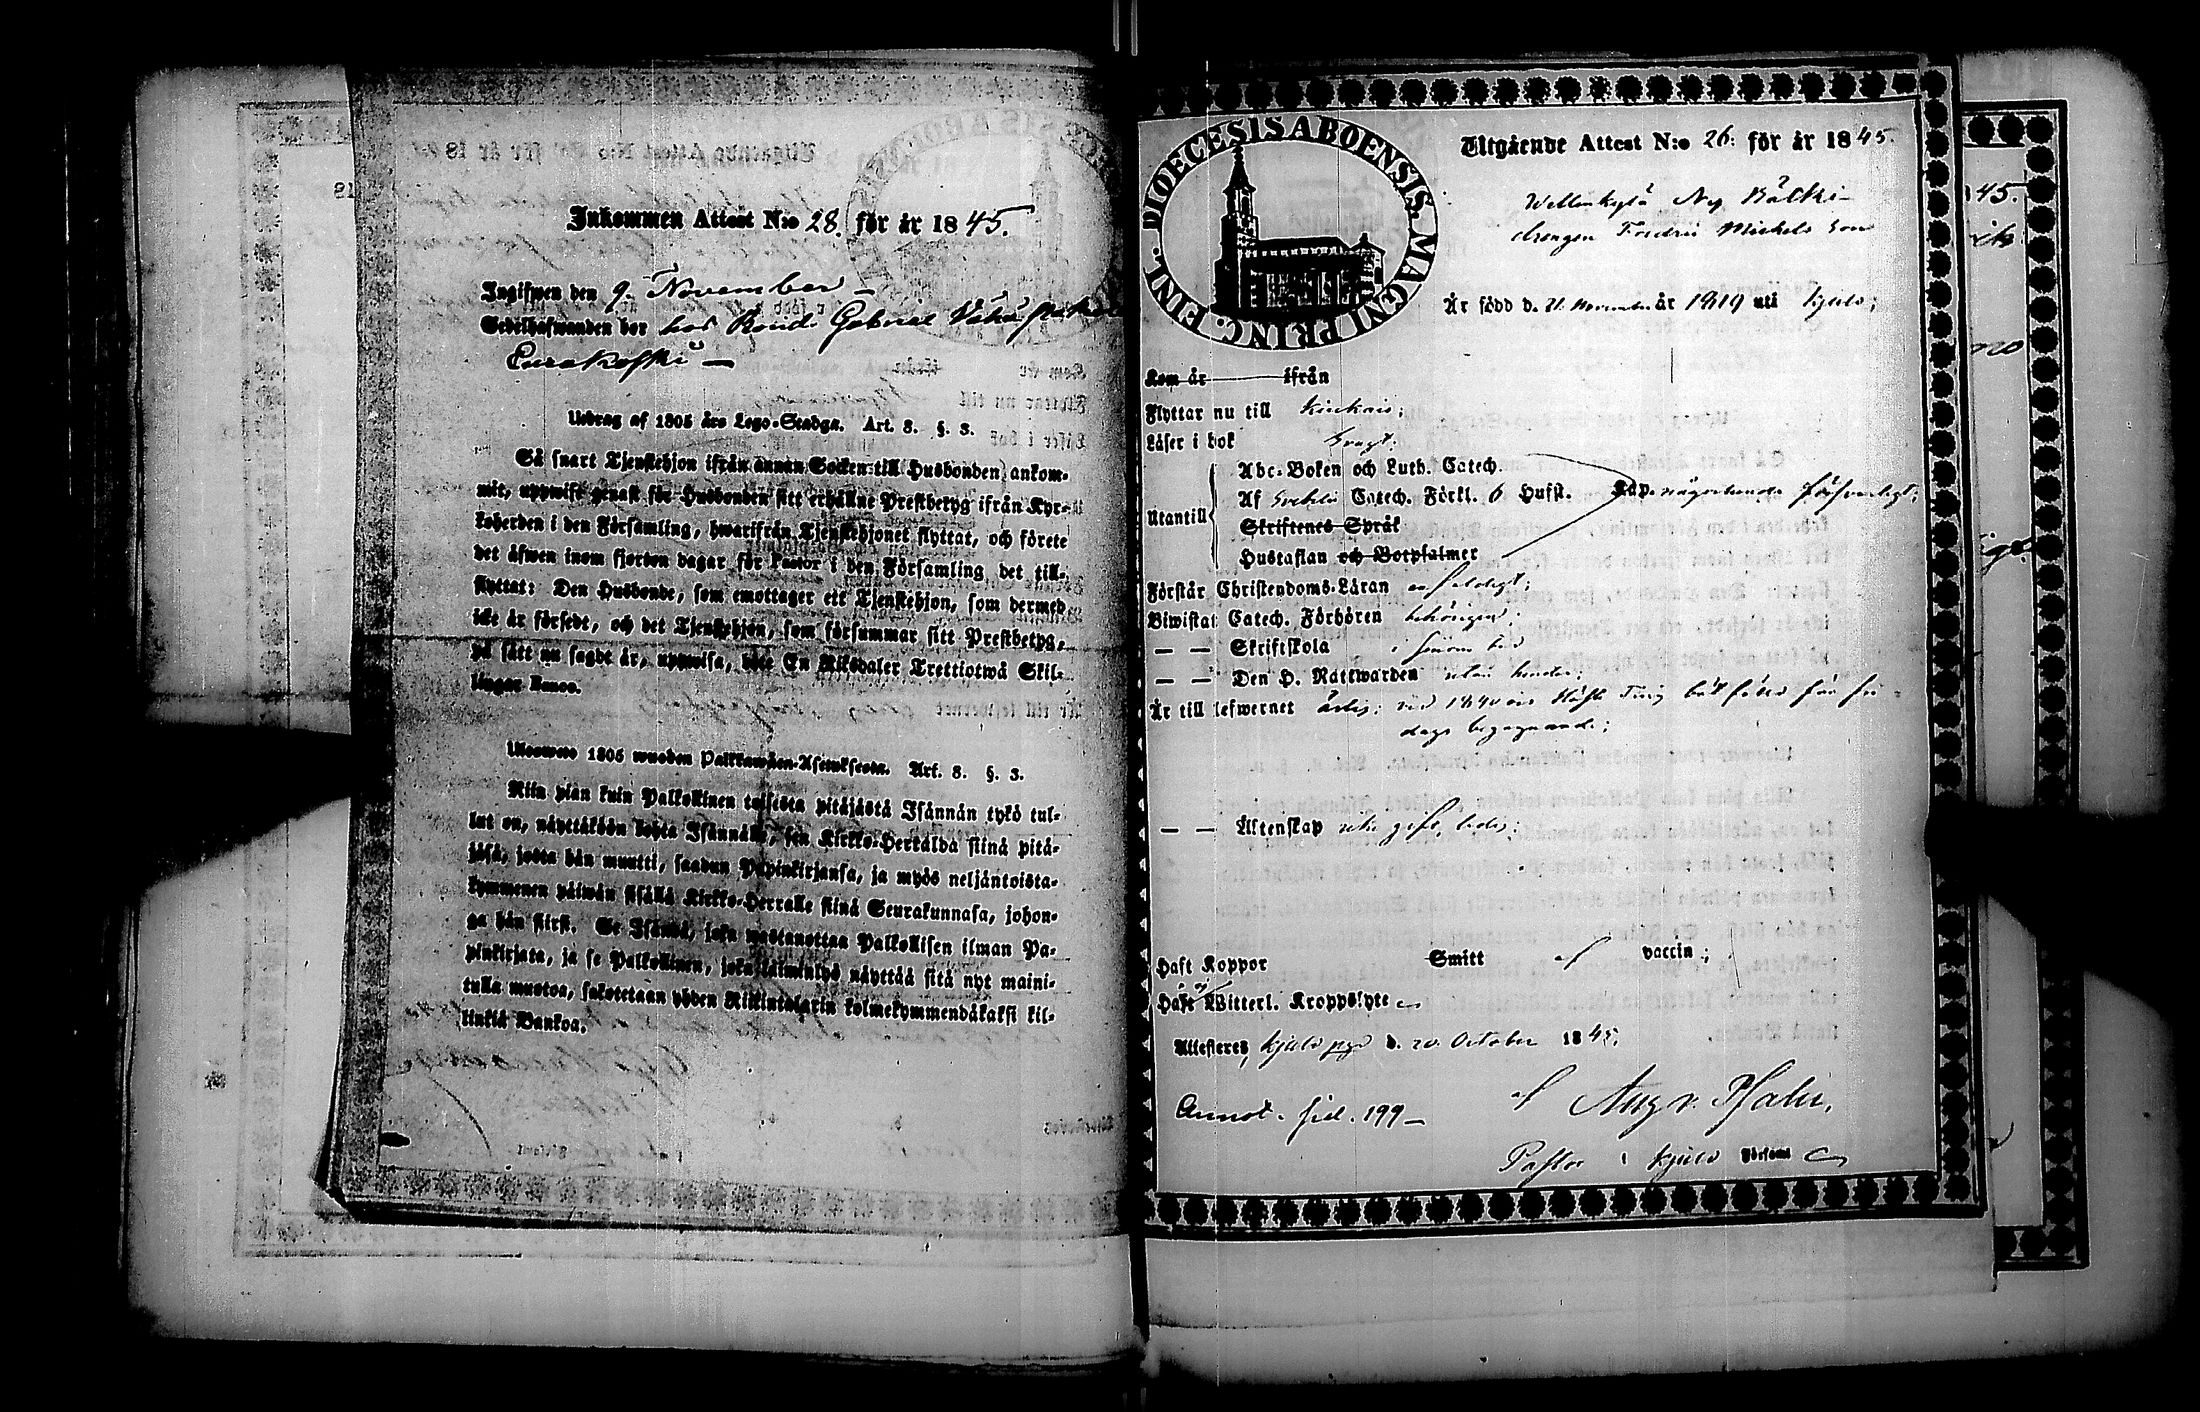 Inkommen Attest N:o 28. för år 1845.
Ingifwen den 9. November
Sedelhafwanden bor hos Bond. Gabriel
Eurakoski
Utdrag af 1805 års Lego-Stadga. Art. 8. §. 3.
Så snart Tjenstehjon ifrån annan Socken till Husbonden ankom-
mit, uppwise genast för Husbonden sitt erhållne Prestbetyg ifrån Kyr-
koherden i den Församling, hwarifrån Tjenstehjonet flyttat, och förete
det äfwen inom fjorton dagar för Pastor i den Församling det till-
flyttat: Den Husbonde, som emottager ett Tjenstehjon, som dermed
icke är försedt, och det Tjenstehjon, som försummar sitt Prestbetyg,
på sätt nu sagdt är, uppwisa, böte En Riksdaler Trettiotwå Skil-
lingar Banco.
Ulosweto 1805 wuoden Palkkawäen-Asetuksesta. Art. 8. §. 3.
Niin pian kuin Palkollinen toisesta pitäjästä Isännän tykö tul-
lut on, näyttäköön kohta Isännälle, sen Kirkko-Herralda siinä pitä-
jäsä, josta hän muutti, saadun Papinkirjansa, ja myös neljäntoista-
kymmenen päiwän sisällä Kirkko-Herralle siinä Seurakunnasa, johon-
ga hän siirsi. Se Isändä, joka wastanottaa Palkollisen ilman Pa-
pinkirjata, ja se Palkollinen, joka laiminlyö näyttää sitä nyt maini-
tulla muotoa, sakotetaan yhden Riikintalarin kolmekymmendäkaksi kil-
lingiä Bankoa.
DIOECESIS ABOENSIS. MAGNI PRINC. FINL.
Utgående Attest N:o 26. för år 1845.
drengen Michels Son
Är född d. 21 November år 1819 uti Kjulo;
Kom år ifrån
Flyttar nu till Kiukais;
Läser i bok svagt;
Utantill
Abc-Boken och Luth. Catech.
Af Svebelii Catech. Förkl. 6 Hufst. Kap. någorlunda försvarligt;
Skriftenes Språk
Hustaflan och Botpsalmer
Förstår Christendoms-Läran enfaldigt;
Biwistat Catech. Förhören behörigen;
— — Skriftskola
— — Den H. Nattwarden utan hinder;
Är till lefwernet ärlig; vid 1840 års Höste Ting bötfäld för fri-
dags
— — Äktenskap icke gift, ledig;
Haft Koppor Smitt af vaccin;
Haft ej Witterl. Kroppslyte
Attesteres, Kjulo pgd d. 20. October 1845.
Annot. fid. 199
Pastor i Kjulo Församl